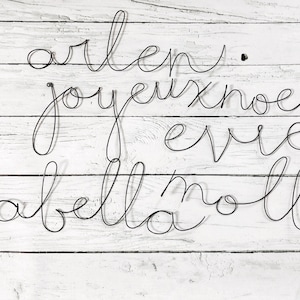 arlen
joyeuxnoe
evie
abella
moll